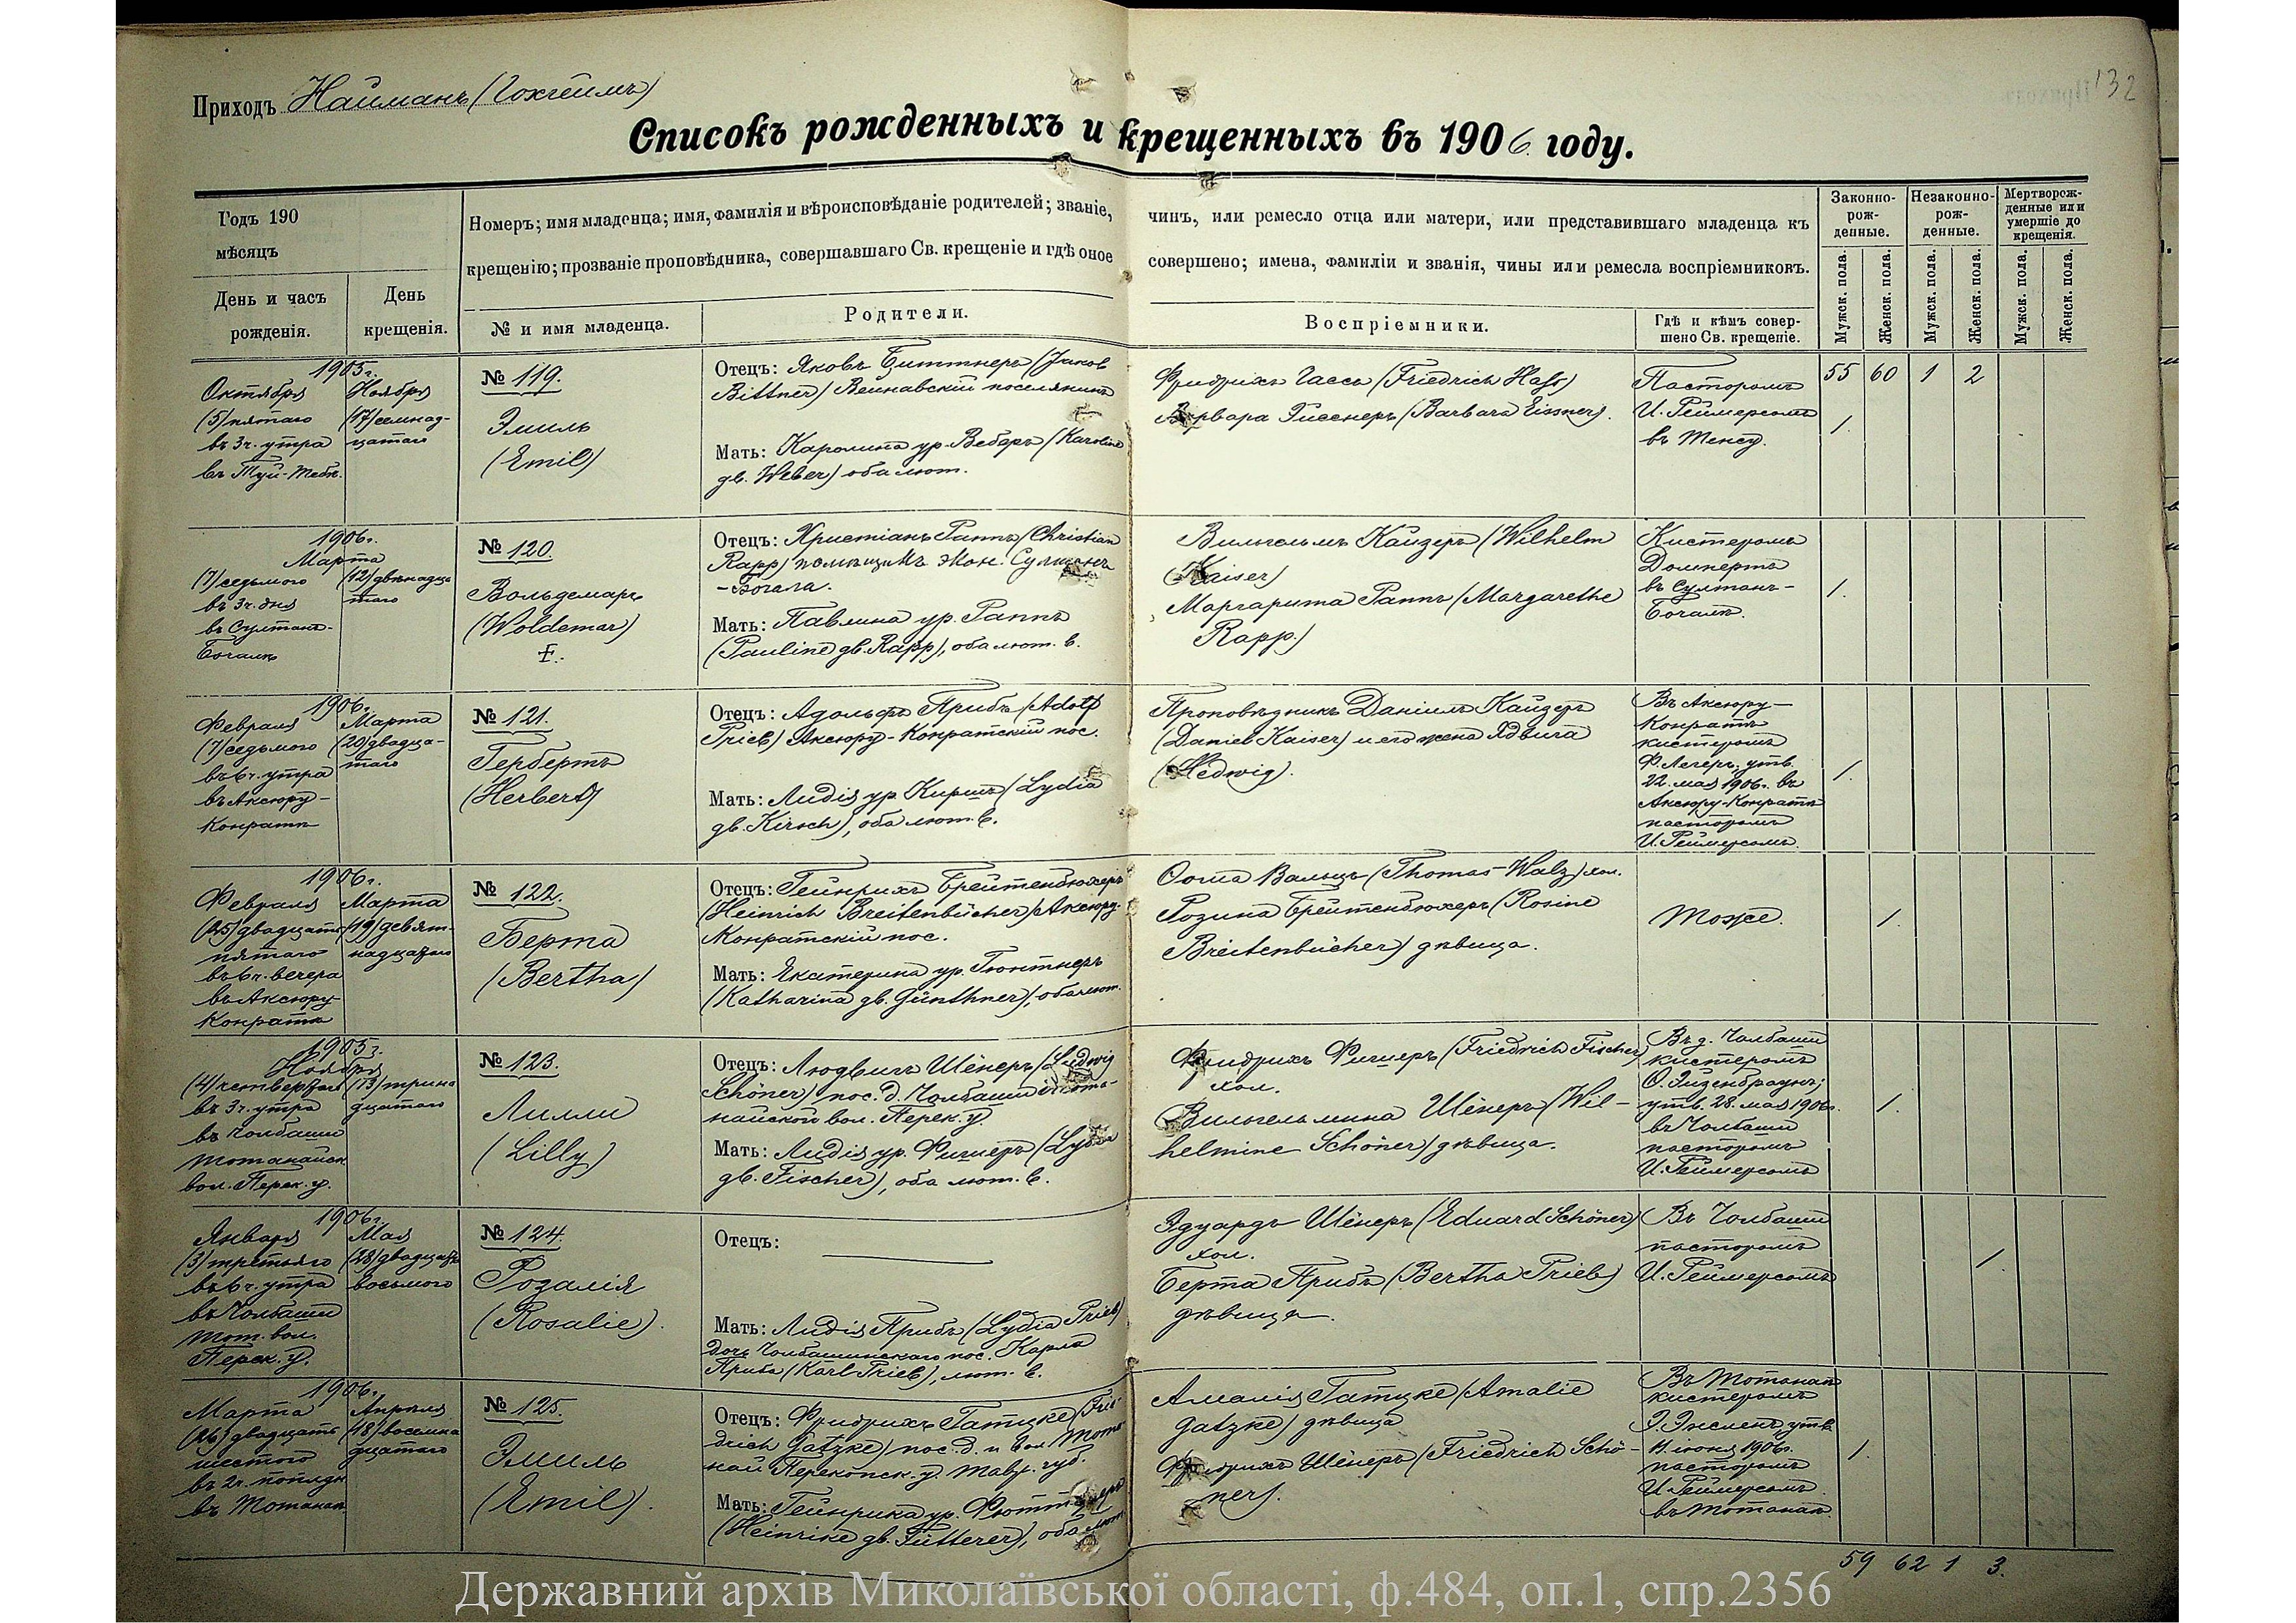 132
Приходъ Найманъ (Гохгеймъ)
Списокъ рожденныхъ и крещенныхъ въ 1906 году.
Годъ 190
мѣсяцъ
День и часъ
рожденія.
День
крещенія.
Номеръ; имя младенца; имя, фамилія и вѣроисповѣданіе родителей; званіе,
крещенію; прозваніе проповѣдника, совершавшаго Св. крещеніе и гдѣ оное
№ и имя младенца.
Родители.
чинъ, или ремесло отца или матери, или представившаго младенца къ
совершено; имена, фамиліи и званія, чины или ремесла воспріемниковъ.
Воспріемники.
Гдѣ и кѣмъ совер-
шено Св. крещеніе.
Законно-
рож-
денные.
Незаконно-
рож-
денные.
Мертворож-
денные или
умершіе до
крещенія.
Мужск. пола.
Женск. пола.
Мужск. пола.
Женск. пола.
Мужск. пола.
Женск. пола.
1905г.
Октября
(5) пятаго
въ 3 ч. утра
въ Туй-Тебе.
Ноября
(17) семнад-
цатаго
№ 119.
Эмиль
(Emil)
Отецъ: Яковъ Биттнеръ (Jakob
Bittner) Вейнавскій поселянинъ
Мать: Каролина ур. Веберъ (Karoline
gb. Weber) оба лют.
Фридрихъ Гассъ (Friedrich Hass)
Варвара Эисснеръ (Barbara Eissner).
Пасторомъ
И. Реймерсомъ
въ Менсу.
55 60 1 2
1.
1906г.
Марта
(7) седьмого
въ 3 ч. дня
въ Султанъ-
Богалѣ
(12) двѣнадца
таго
№ 120.
Вольдемаръ
(Woldemar)
Отецъ: Христіанъ Раппъ (Christian
Rapp) помѣщикъ экон. Султанъ
-Богала.
Мать: Павлина ур. Раппъ
(Pauline gb. Rapp), оба лют. в.
Вильгельмъ Кайзеръ (Wilhelm
Kaiser)
Маргарита Раппъ (Margarethe
Rapp.)
Кистеромъ
Домпертъ
въ Султанъ-
Богалѣ.
1.
1906г.
Февраля
(7) седьмого
въ 6 ч. утра
въ Аксюру-
Конратѣ
Марта
(20) двадца-
таго
№ 121.
Гербертъ
(Herbert)
Отецъ: Адольфъ Прибъ (Adolf
Prieb) Аксюру-Конратскій пос.
Мать: Лидія ур. Киршъ (Lydia
gb. Kirsch), оба лют. в.
Проповѣдникъ Даніилъ Кайзеръ
(Daniel Kaiser) и его жена Ядвига
(Hedwig).
Въ Аксюру-
Конратѣ
кистеромъ
Ф. Легеръ; утв.
22. мая 1906г. въ
Аксюру-Конратѣ
пасторомъ
И. Реймерсомъ.
1.
1906г.
Февраля
(25) двадцать
пятаго
въ 6 ч. вечера
въ Аксюру-
Конратѣ
Марта
(19) девят-
надцатаго
№ 122.
Берта
(Bertha)
Отецъ: Гейнрихъ Брейтенбюхеръ
(Heinrich Breitenbücher) Аксюру-
Конратскій пос.
Мать: Екатерина ур. Гюнтнеръ
(Katharina gb. Günthner), оба лют.
Ѳома Вальцъ (Thomas Walz) хол.
Розина Брейтенбюхеръ (Rosine
Breitenbücher) дѣвица.
Тоже.
1.
1905г.
Ноября
(4) четвертаго
въ 3 ч. утра
въ Чолбаши
Тотанайск
вол. Перек. у.
(13) трина
дцатаго
№ 123.
Лилли
(Lilly)
Отецъ: Людвигъ Шёнеръ (Ludwig
Schöner) пос. д. Чолбаши Тота-
найской вол. Перек. у.
Мать: Лидія ур. Фишеръ (Lydia
gb. Fischer), оба лют. в.
Фридрихъ Фишеръ (Friedrich Fischer)
хол.
Вильгельмина Шёнеръ (Wil-
helmine Schöner) дѣвица.
Въ д. Чолбаши
кистеромъ
О. Эйзенбраунъ;
утв. 28. мая 1906г.
въ Чолбаши
пасторомъ
И. Реймерсомъ
1.
1906г.
Января
(3) третьяго
въ 6 ч. утра
въ Чолбаши
Тот. вол.
Перек. у.
Мая
(28) двадцать
восьмого
№ 124.
Розалія
(Rosalie).
Отецъ:
Мать: Лидія Прибъ (Lydia Prieb)
дочь Чолбашинскаго пос. Карла
Приба (Karl Prieb), лют. в.
Эдуардъ Шёнеръ (Eduard Schöner)
хол.
Берта Прибъ (Bertha Prieb)
дѣвица.
Въ Чолбаши
пасторомъ
И. Реймерсомъ
1.
1906г.
Марта
(26) двадцать
шестого
въ 2 ч. пополдн
въ Тотанаѣ
Апрѣля
(18) восемна
дцатаго
№ 125.
Эмиль
(Emil).
Отецъ: Фридрихъ Гатцке (Frie-
drich Gatzke) пос. д. и вол. Тота-
най Перекопск. у. Тавр. губ.
Мать: Гейнрика ур. Фюттереръ
(Heinrike gb. Fütterer), оба лют.
Амалія Гатцке (Amalie
Gatzke) дѣвица
Фридрихъ Шёнеръ (Friedrich Schö-
ner).
Въ Тотанаѣ
кистеромъ
утв.
11. іюня 1906г.
пасторомъ
И. Реймерсомъ.
въ Тотанаѣ.
1.
59 62 1 3.
Державний архів Миколаївської області, ф.484, оп.1, спр.2356